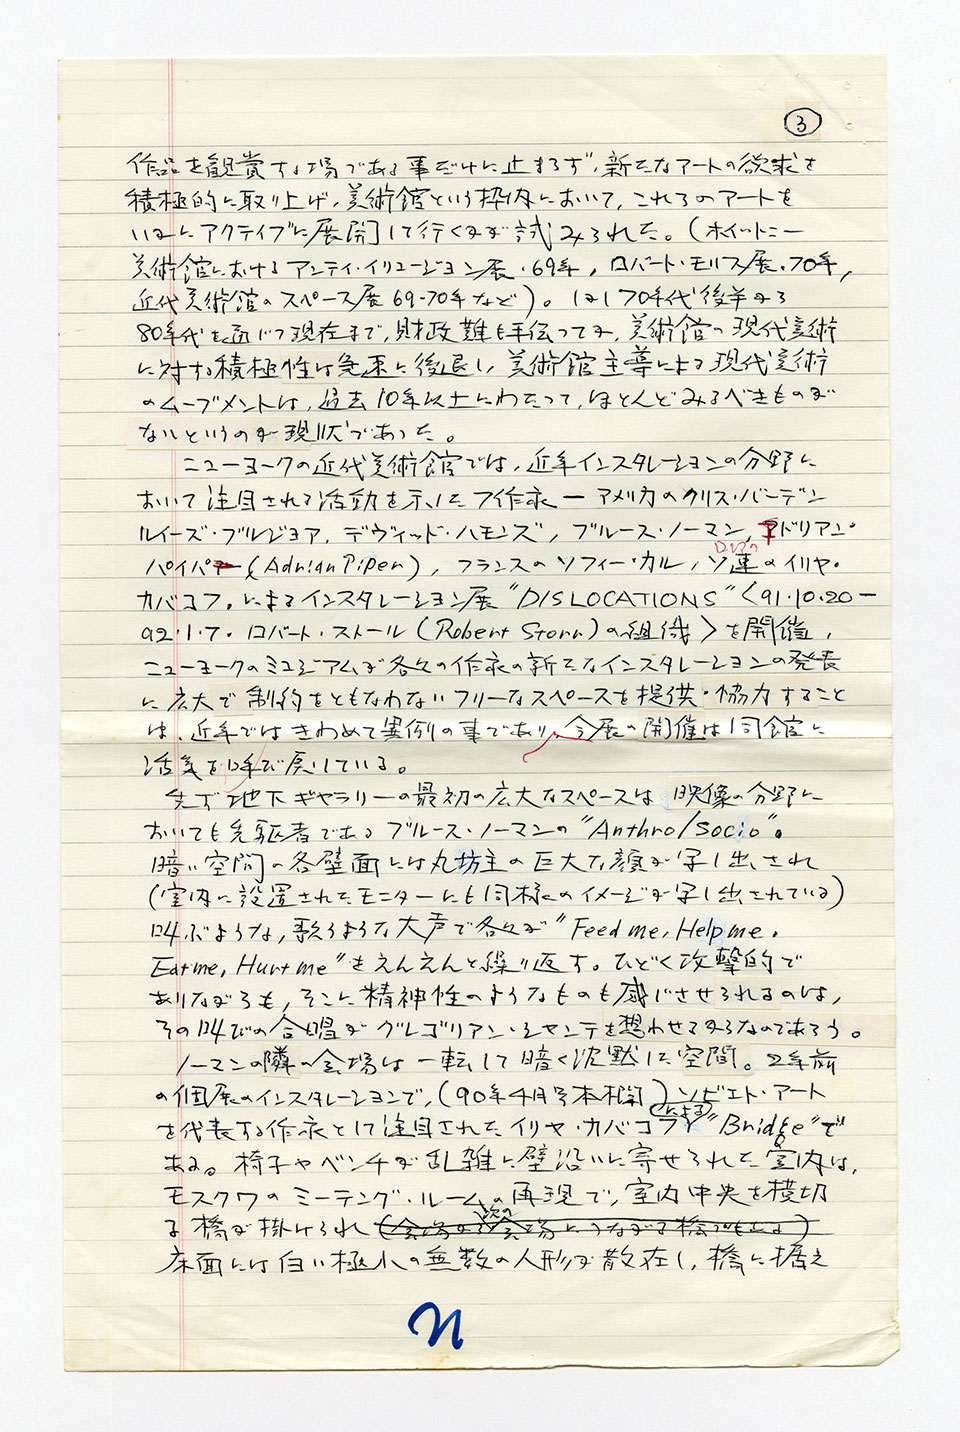 3
作品を観賞する場である事だけに止まらず、新たなアートの欲求を
積極的に取り上げ、美術館という枠内において、これらのアートを
いかにアクティブに展開して行くかが試みられた。(ホイットニー
美術館におけるアンティ・イリュージョン展・69年, ロバート・モリス展・70年,
近代美術館のスペース展69-70年など)。しかし70年代後半から
80年代を通じて現在まで、財政難も手伝ってか、美術館の現代美術
に対する積極性は急速に後退し、美術館主導による現代美術
のムーブメントは、過去10年以上にわたって、ほとんどみるべきものが
ないというのが現状であった。
ニューヨークの近代美術館では、近年インスタレーションの分野に
おいて注目される活動を示した7作家ーアメリカのクリス・バーデン
ルイーズ・ブルジョア, デヴィッド・ハモンズ, ブルース・ノーマン, アドリアン・
パイパー(Adrian Piper), フランスのソフィー・カル, ソ連のイリヤ・
ロシア
カバコフ。によるインスタレーション展"DISLOCATIONS"〈91・10・20ー
92・1・7・ロバート・ストール(Robert Storr)の組織〉を開催,
ニューヨークのミュジアムが各々の作家の新たなインスタレーションの発表
に広大で制約をともなわないフリーなスペースを提供・協力すること
は、近年ではきわめて異例の事であり、今展の開催は同館に
活気を呼び戻している。
先ず地下ギャラリーの最初の広大なスペースは 映像の分野に
おいても先駆者であるブルース・ノーマンの"Anthro/Socio"。
暗い空間の各壁面には丸坊主の巨大な顔が写し出され
(室内に設置されたモニターにも同様のイメージが写し出されている)
叫ぶような, 歌うような大声で各々が"Feed me, Help me,
Eat me, Hurt me"をえんえんと繰り返す。ひどく攻撃的で
ありながらも, そこに精神性のようなものも感じさせられるのは,
その叫びの合唱がグレゴリアン・シャンテを想わせるからなのであろう。
ノーマンの隣の会場は一転して暗く沈黙した空間。2年前
の個展のインスタレーションで,(90年4月号本欄)ソビエト・アート
を代表する作家として注目されたイリヤ・カバコフ"Bridge"で
による
ある。椅子やベンチが乱雑に壁沿いに寄せられた室内は,
モスクワのミーティング・ルームの再現で, 室内中央を横切
次の
る橋が掛けられ(会場から会場につながる橋でもある)
床面には白い極小の無数の人形が散在し, 橋に据え
n